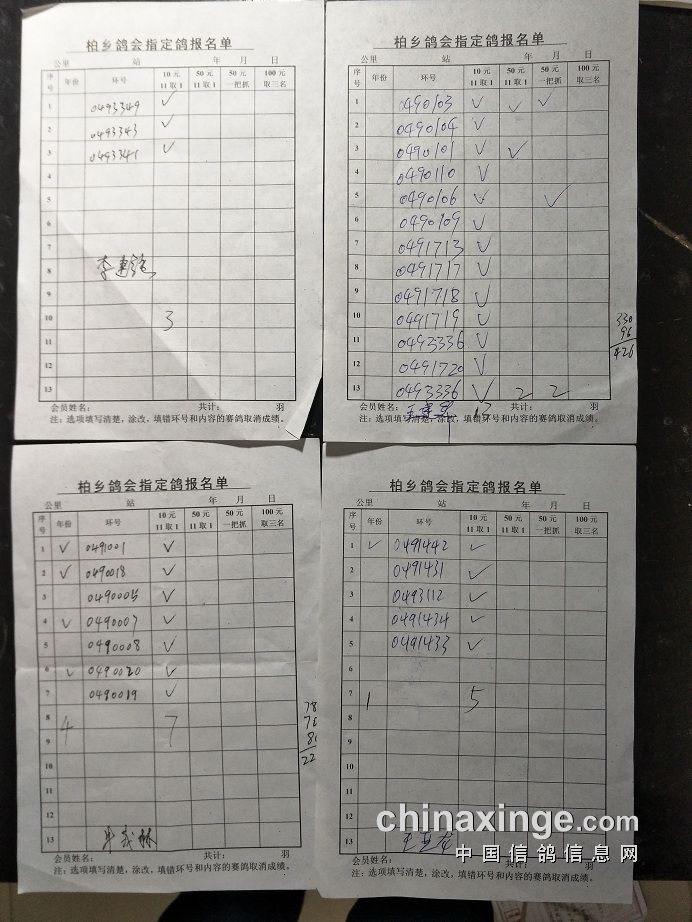 柏乡鸽会指定鸽报名单
公里 站 年 月 日
序号 年份 环号 10元 11取1 50元 11取1 50元 一把抓 100元 取三名
1 0493349 ✓
2 0493343 ✓
3 0493341 ✓
4
5
6
7
8
9
10 3
11
12
13
会员姓名： 共计： 羽
注：选项填写清楚，涂改，填错环号和内容的赛鸽取消成绩。
柏乡鸽会指定鸽报名单
公里 站 年 月 日
序号 年份 环号 10元 11取1 50元 11取1 50元 一把抓 100元 取三名
1 0490103 ✓ ✓ ✓
2 0490104 ✓
3 0490101 ✓ ✓
4 0490110 ✓
5 0490106 ✓ ✓
6 0490109 ✓
7 0491713 ✓
8 0491717 ✓
9 0491718 ✓
10 0491719 ✓
11 0493336 ✓
12 0491720 ✓
13 0493336 ✓ 2 2
330
96
426
会员姓名： 13 共计： 羽
注：选项填写清楚，涂改，填错环号和内容的赛鸽取消成绩。
柏乡鸽会指定鸽报名单
公里 站 年 月 日
序号 年份 环号 10元 11取1 50元 11取1 50元 一把抓 100元 取三名
1 ✓ 0491001 ✓
2 ✓ 0490018 ✓
3 0490005 ✓
4 ✓ 0490007 ✓
5 0490008 ✓
6 ✓ 0490020 ✓
7 0490019 ✓
8 4 7
9
10
11
12
13
会员姓名： 共计： 羽
注：选项填写清楚，涂改，填错环号和内容的赛鸽取消成绩。
柏乡鸽会指定鸽报名单
公里 站 年 月 日
序号 年份 环号 10元 11取1 50元 11取1 50元 一把抓 100元 取三名
1 ✓ 0491442 ✓
2 0491431 ✓
3 0493112 ✓
4 0491434 ✓
5 0491433 ✓
6
7 1 5
8
9
10
11
12
13
会员姓名： 共计： 羽
注：选项填写清楚，涂改，填错环号和内容的赛鸽取消成绩。
chinaxinge.com
中国信鸽信息网